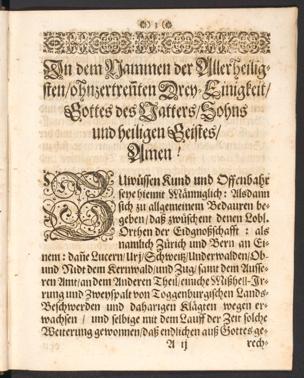 3
In dem Nammen der Allerheilig-
sten/ohnzertreñten Drey-Einigkeit/
Gottes des Vatters/Sohns
und heiligen Geistes/
Amen!
ZUwüssen Kund und Offenbahr
seye hiemit Männiglich: Alsdann
sich zu allgemeinem Bedauren be-
geben/daß zwüschent denen Lobl.
Orthen der Eidgnoßschafft: als
namlich Zürich und Bern an Ei-
nem: dañe Lucern/Uri/Schweitz/Underwalden/Ob-
und Nidt dem Kernwald/und Zug/samt dem Ausse-
ren Amt/an dem Anderen Theil/einiche Mißhell-Ir-
rung und Zweyspalt von Toggenburgischen Lands-
Beschwerden und daharigen Klägten wegen er-
wachsen/ und selbige mit dem Lauff der Zeit solche
Weiterung gewonnen/daß endlichen auß Gottes ge-
A ij rech-